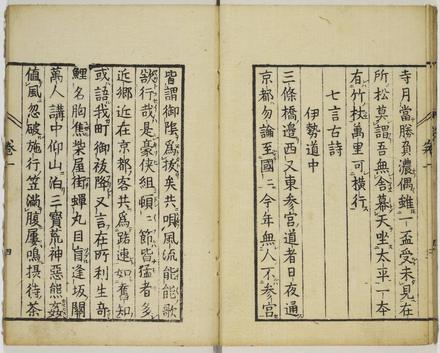 寺月當勝負濃偶雖一盃受未見在
所松莫謂吾無念暮天坐太平一本
有竹杖萬里可橫行
七言古詩
伊勢道中
三條橋邊西又東参宮道者日夜通
京都勿論至國々今年無人不参宮
皆謂御陰爲拔矣共唄風流能能歌
欲行哉是豪俠組頓々節皆猛者多
近鄉近在京都客共爲踏連如舊知
或語我町御祓降又言在所利生奇
鯉名胸焦柴屋街蟬丸目盲逢坂關
萬人講中仰山泊三寶荒神惡熊姦
値風忽破施行笠滿腹屢鳴摂待茶
卷一
四